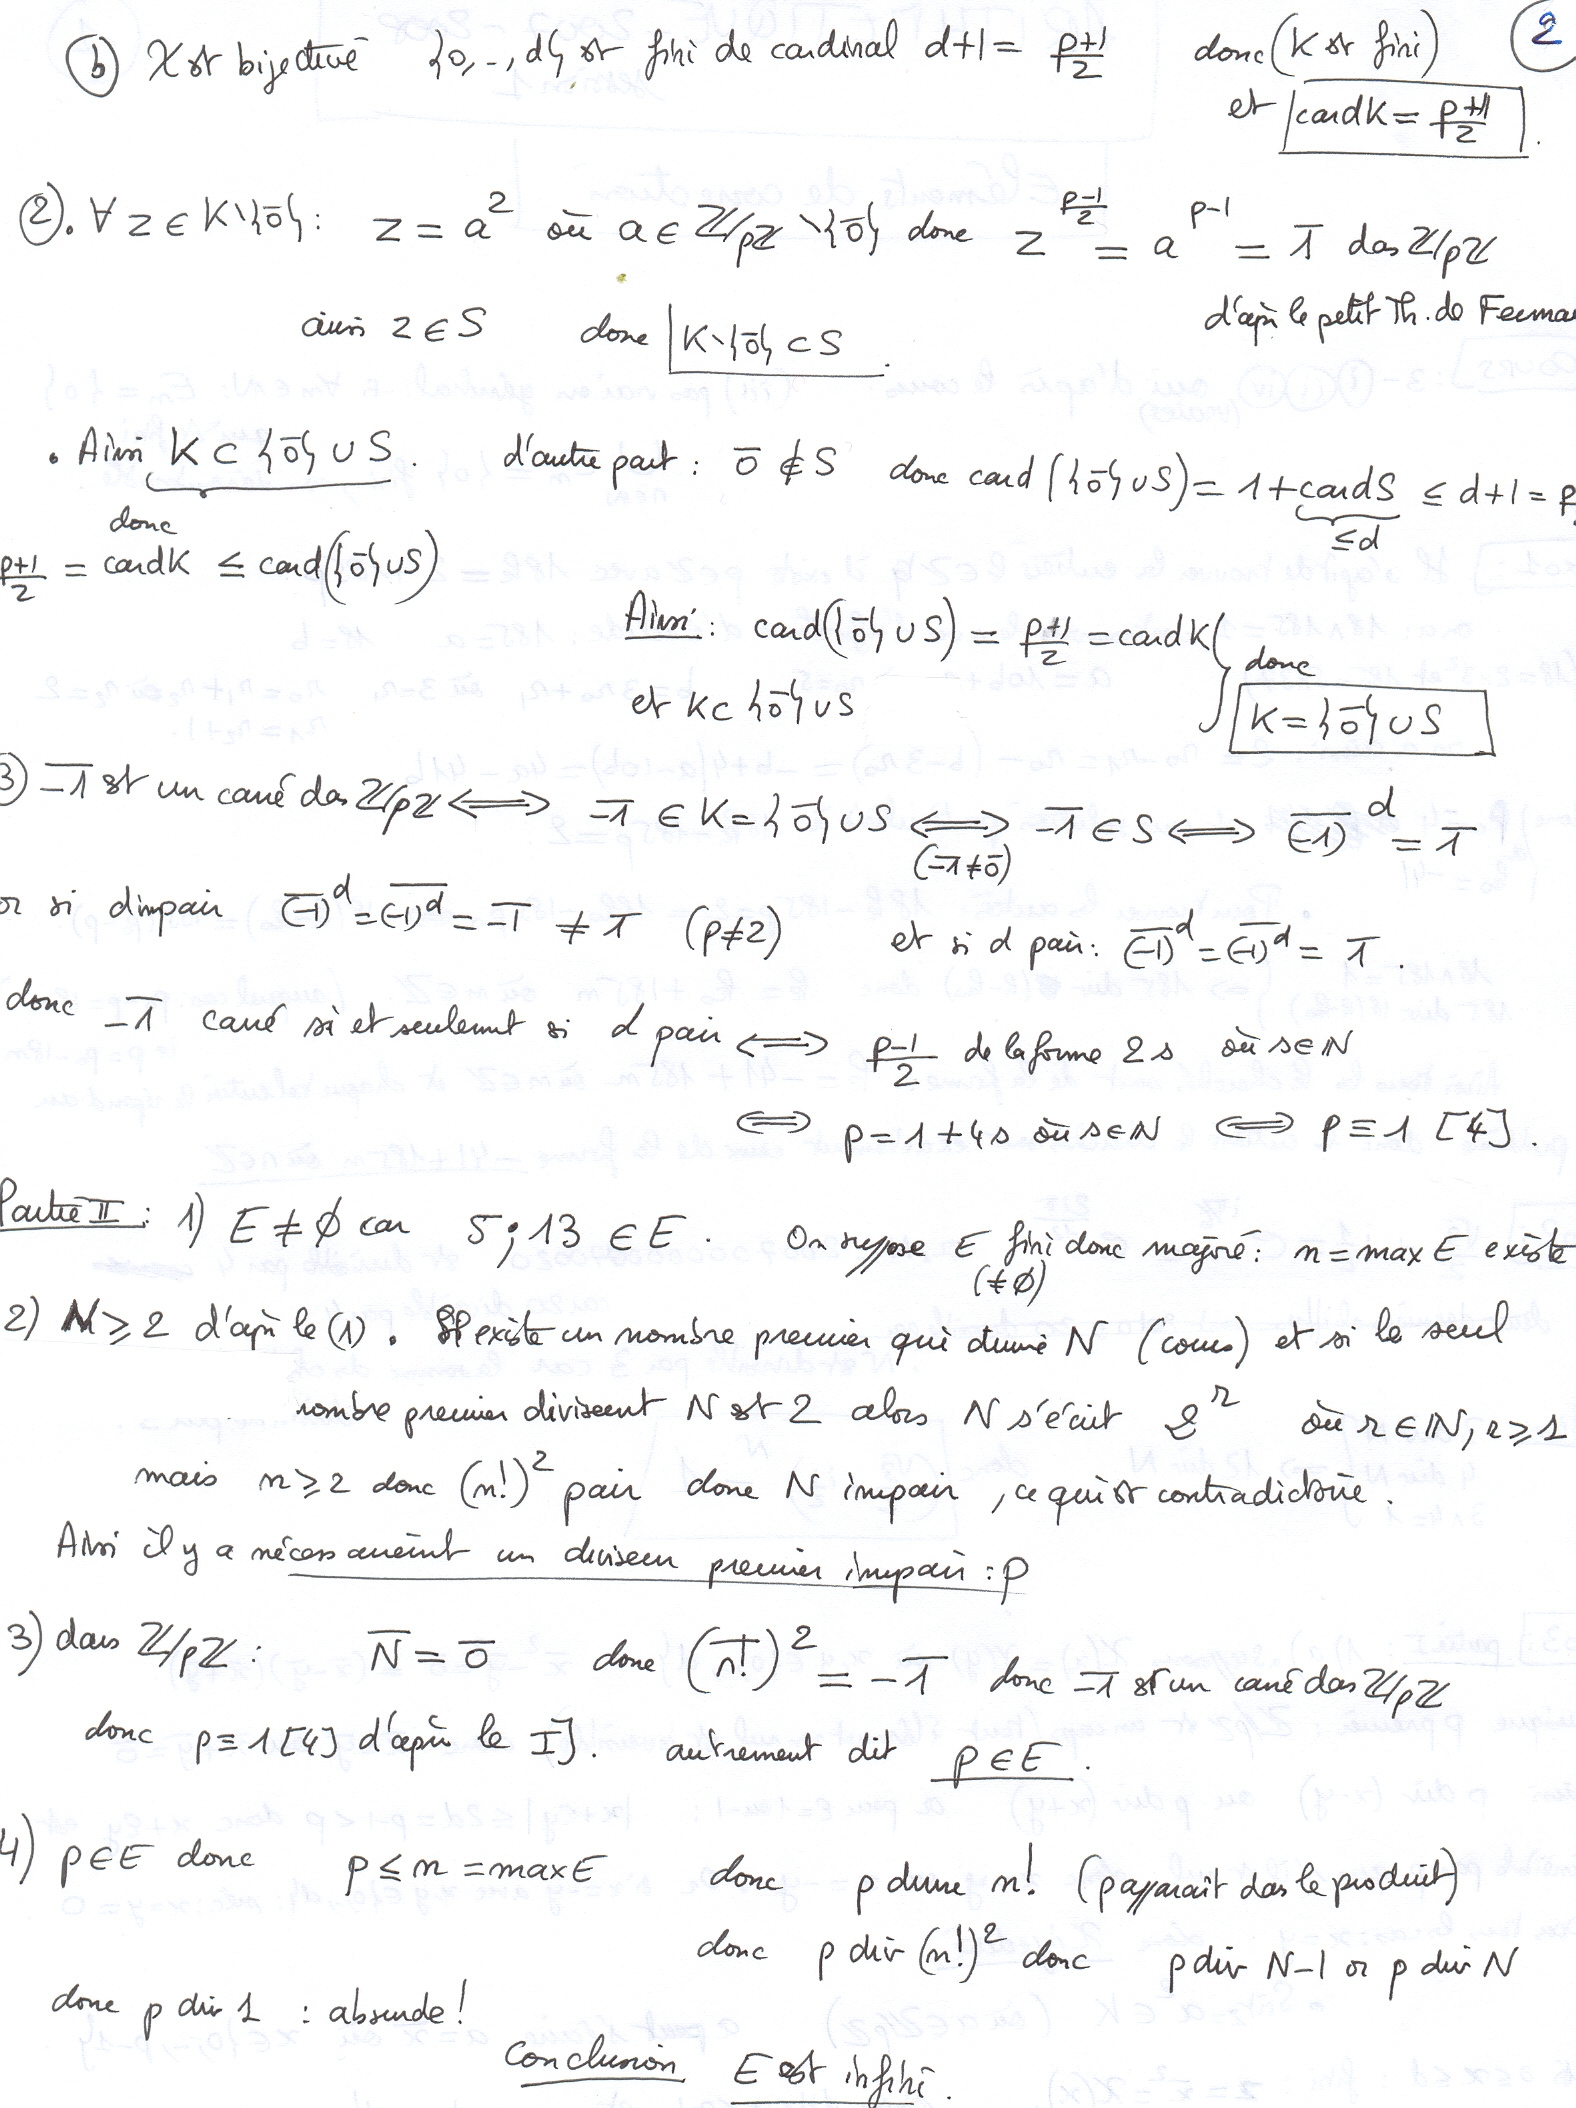 2
b) χ est bijective {0,..,d} est fini de cardinal d+1 = (p+1)/2 donc (K est fini)
et cardK = (p+1)/2.
2). ∀ z ∈ K\{0̄} : z = a² où a ∈ ℤ/pℤ \{0̄} donc z^((p-1)/2) = a^(p-1) = 1̄ das ℤ/pℤ
ainsi z ∈ S donc K\{0̄} ⊂ S. d'après le petit Th. de Fermat
. Ainsi K ⊂ {0̄} ∪ S. d'autre part : 0̄ ∉ S donc card({0̄} ∪ S) = 1 + cardS ≤ d+1 = p
donc ≤d
(p+1)/2 = cardK ≤ card({0̄} ∪ S)
Ainsi : card({0̄} ∪ S) = (p+1)/2 = cardK
et K ⊂ {0̄} ∪ S donc K = {0̄} ∪ S
3) -1̄ est un carré das ℤ/pℤ ⟺ -1̄ ∈ K = {0̄} ∪ S ⟺ (-1̄ ≠ 0̄) -1̄ ∈ S ⟺ (-1̄)^d = 1̄
or si d impair (-1̄)^d = \overline{(-1)^d} = -1̄ ≠ 1̄ (p≠2) et si d pair : (-1̄)^d = \overline{(-1)^d} = 1̄.
donc -1̄ carré si et seulement si d pair ⟺ (p-1)/2 de la forme 2s où s∈ℕ
⟺ p = 1+4s où s∈ℕ ⟺ p ≡ 1 [4].
Partie II : 1) E ≠ ∅ car 5 ; 13 ∈ E. On suppose E fini (≠∅) donc majoré : n = max E existe
2) N ≥ 2 d'après le (1). Il existe un nombre premier qui divise N (cours) et si le seul
nombre premier divisant N est 2 alors N s'écrit 2^r où r ∈ ℕ, r ≥ 1
mais n ≥ 2 donc (n!)² pair donc N impair, ce qui est contradictoire.
Ainsi il y a nécessairement un diviseur premier impair : p
3) dans ℤ/pℤ : N̄ = 0̄ donc (\overline{n!})² = -1̄ donc -1̄ est un carré das ℤ/pℤ
donc p ≡ 1 [4] d'après le I]. autrement dit p ∈ E.
4) p ∈ E donc p ≤ n = max E donc p divise n! (p apparaît das le produit)
donc p div (n!)² donc p div N-1 or p div N
donc p div 1 : absurde !
Conclusion E est infini.